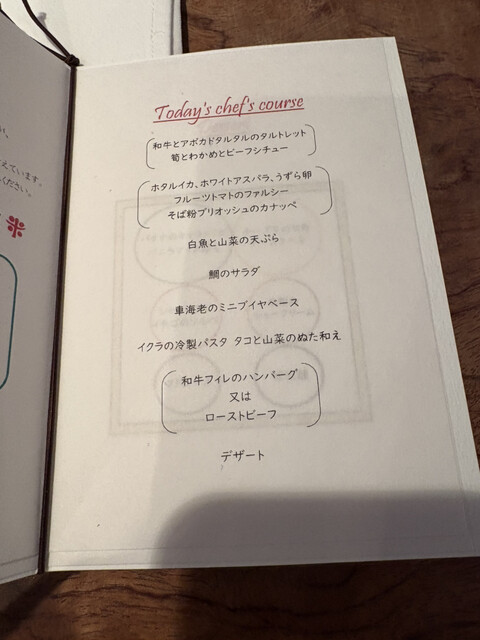 Today's chef's course
和牛とアボカドタルタルのタルトレット
筍とわかめとビーフシチュー
ホタルイカ、ホワイトアスパラ、うずら卵
フルーツトマトのファルシー
そば粉ブリオッシュのカナッペ
白魚と山菜の天ぷら
鯛のサラダ
車海老のミニブイヤベース
イクラの冷製パスタ タコと山菜のぬた和え
和牛フィレのハンバーグ
又は
ローストビーフ
デザート
えています。
ください。